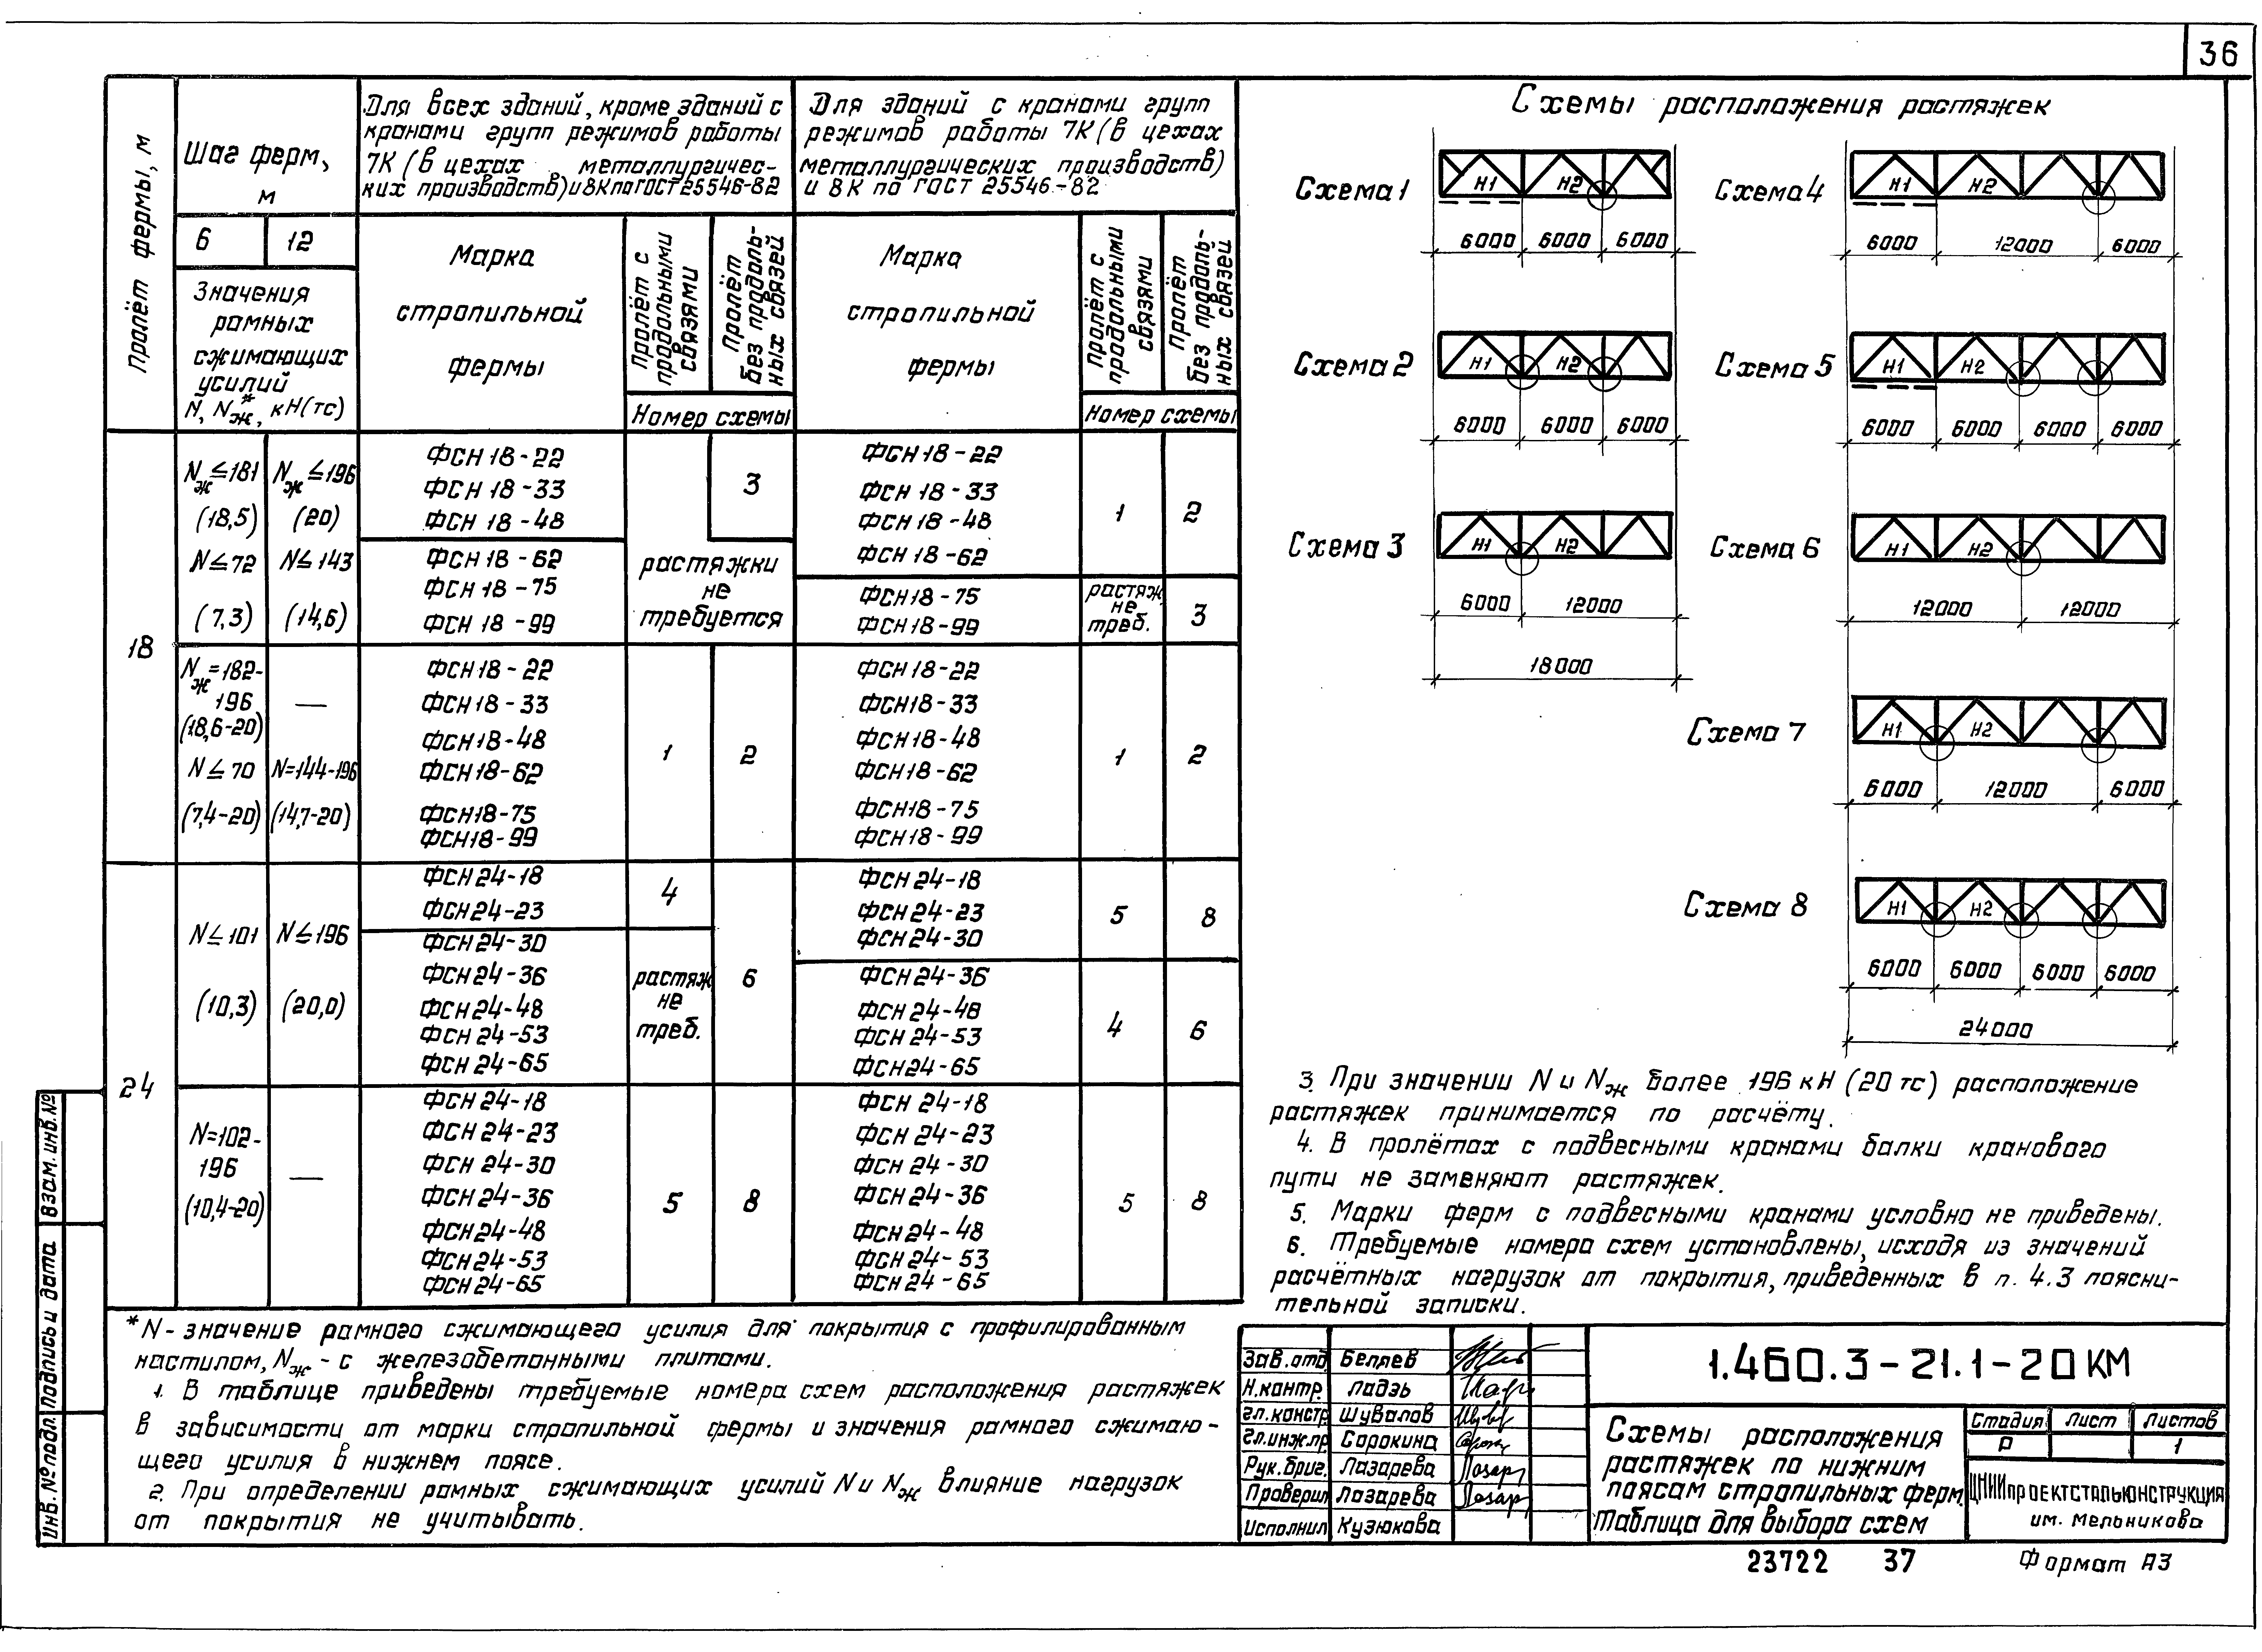 36
Пролёт фермы, м
Шаг ферм,
м
6
12
Значения
рамных
сжимающих
усилий
N, Nж*, кН(тс)
Для всех зданий, кроме зданий с
кранами групп режимов работы
7К (в цехах металлургичес-
ких производств) и 8К по ГОСТ 25546-82
Марка
стропильной
фермы
Пролёт с
продольными
связями
Пролёт
без продоль-
ных связей
Номер схемы
Для зданий с кранами групп
режимов работы 7К (в цехах
металлургических производств)
и 8К по ГОСТ 25546-82
Марка
стропильной
фермы
Пролёт с
продольными
связями
Пролёт
без продоль-
ных связей
Номер схемы
18
Nж ≤ 181
(18,5)
N ≤ 72
(7,3)
Nж ≤ 196
(20)
N ≤ 143
(14,6)
ФСН 18-22
ФСН 18-33
ФСН 18-48
3
ФСН 18-62
ФСН 18-75
ФСН 18-99
растяжки
не
требуется
ФСН 18-22
ФСН 18-33
ФСН 18-48
ФСН 18-62
1
2
ФСН 18-75
ФСН 18-99
растяж
не
треб.
3
Nж = 182-
196
(18,6-20)
N ≤ 70
(7,4-20)
—
N=144-196
(14,7-20)
ФСН 18-22
ФСН 18-33
ФСН 18-48
ФСН 18-62
ФСН 18-75
ФСН 18-99
1
2
ФСН 18-22
ФСН 18-33
ФСН 18-48
ФСН 18-62
ФСН 18-75
ФСН 18-99
1
2
24
N ≤ 101
(10,3)
N ≤ 196
(20,0)
ФСН 24-18
ФСН 24-23
4
ФСН 24-30
ФСН 24-36
ФСН 24-48
ФСН 24-53
ФСН 24-65
растяж
не
треб.
6
ФСН 24-18
ФСН 24-23
ФСН 24-30
5
8
ФСН 24-36
ФСН 24-48
ФСН 24-53
ФСН 24-65
4
6
N=102-
196
(10,4-20)
—
ФСН 24-18
ФСН 24-23
ФСН 24-30
ФСН 24-36
ФСН 24-48
ФСН 24-53
ФСН 24-65
5
8
ФСН 24-18
ФСН 24-23
ФСН 24-30
ФСН 24-36
ФСН 24-48
ФСН 24-53
ФСН 24-65
5
8
*N - значение рамного сжимающего усилия для покрытия с профилированным
настилом, Nж - с железобетонными плитами.
1. В таблице приведены требуемые номера схем расположения растяжек
в зависимости от марки стропильной фермы и значения рамного сжимаю-
щего усилия в нижнем поясе.
2. При определении рамных сжимающих усилий N и Nж влияние нагрузок
от покрытия не учитывать.
Схемы расположения растяжек
Схема 1
Н1 Н2
6000 6000 6000
Схема 2
Н1 Н2
6000 6000 6000
Схема 3
Н1 Н2
6000 12000
18000
Схема 4
Н1 Н2
6000 12000 6000
Схема 5
Н1 Н2
6000 6000 6000 6000
Схема 6
Н1 Н2
12000 12000
Схема 7
Н1 Н2
6000 12000 6000
Схема 8
Н1 Н2
6000 6000 6000 6000
24000
3. При значении N и Nж более 196 кН (20 тс) расположение
растяжек принимается по расчёту.
4. В пролётах с подвесными кранами балки кранового
пути не заменяют растяжек.
5. Марки ферм с подвесными кранами условно не приведены.
6. Требуемые номера схем установлены, исходя из значений
расчётных нагрузок от покрытия, приведенных в п. 4.3 поясни-
тельной записки.
Зав.отд Беляев
Н.контр. Ладзь
Гл.констр Шувалов
Гл.инж.пр Сорокина
Рук.бриг. Лазарева
Проверил Лазарева
Исполнил Кузюкова
1.460.3-21.1-20 КМ
Схемы расположения
растяжек по нижним
поясам стропильных ферм.
Таблица для выбора схем
Стадия Лист Листов
Р 1
ЦНИИпроектстальконструкция
им. Мельникова
23722 37
Формат А3
Взам. инв.№
Подпись и дата
Инв. № подл.